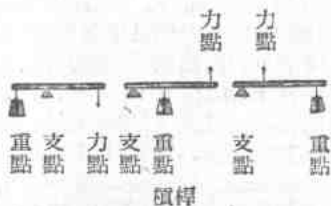 力點
力點
重點 支點 力點 支點 重點 支點 重點
槓桿